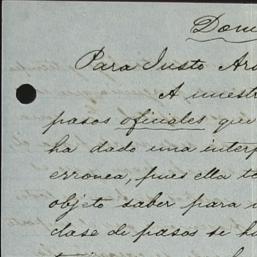 Domi
Para Justo Ar
A nuestr
pasos oficiales que
ha dado una interp
erronea, pues ella to
objeto saber para
clase de pasos se h